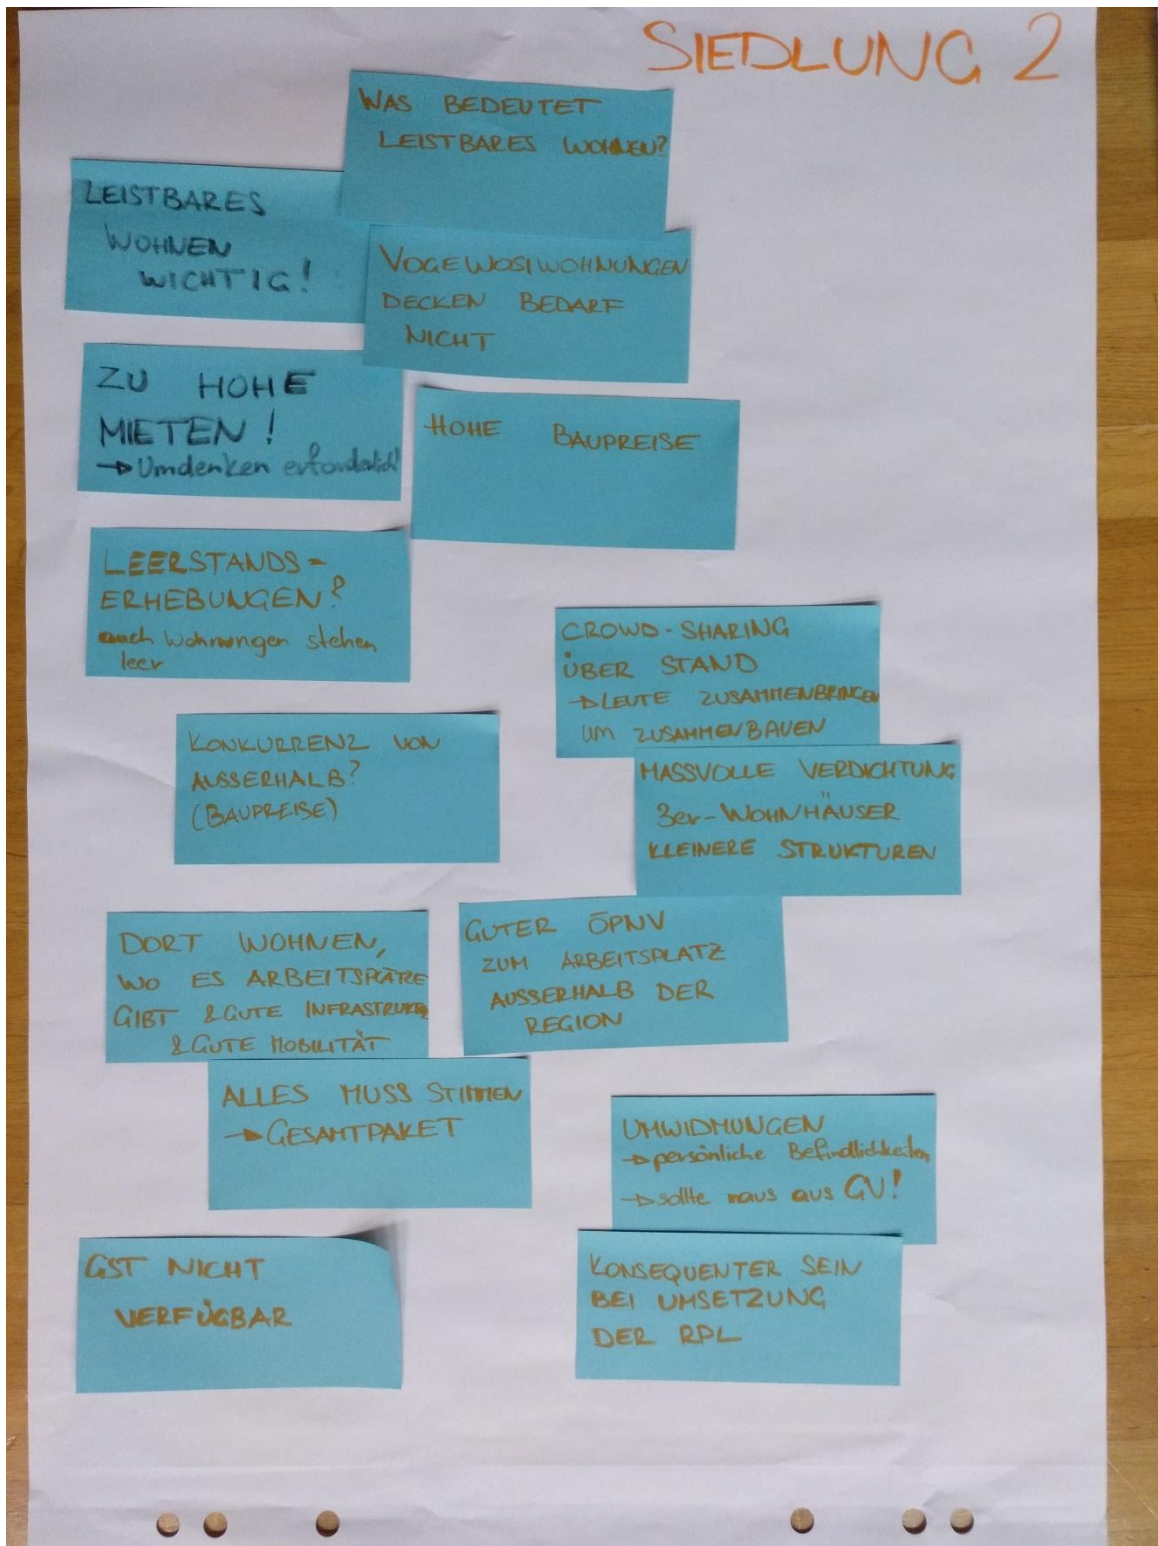 SIEDLUNG 2
WAS BEDEUTET
LEISTBARES WOHNEN?
LEISTBARES
WOHNEN
WICHTIG!
VOGEWOSIWOHNUNGEN
DECKEN BEDARF
NICHT
ZU HOHE
MIETEN!
→ Umdenken erforderlich!
HOHE BAUPREISE
LEERSTANDS=
ERHEBUNGEN?
auch Wohnungen stehen
leer
CROWD-SHARING
ÜBER STAND
→ LEUTE ZUSAMMENBRINGEN
UM ZUSAMMENBAUEN
KONKURRENZ VON
AUSSERHALB?
(BAUPREISE)
MASSVOLLE VERDICHTUNG
3er-WOHNHÄUSER
KLEINERE STRUKTUREN
DORT WOHNEN,
WO ES ARBEITSPLÄTZE
GIBT & GUTE INFRASTRUKTUR
& GUTE MOBILITÄT
GUTER ÖPNV
ZUM ARBEITSPLATZ
AUSSERHALB DER
REGION
ALLES MUSS STIMMEN
→ GESAMTPAKET
UMWIDMUNGEN
→ persönliche Befindlichkeiten
→ sollte raus aus GV!
GST NICHT
VERFÜGBAR
KONSEQUENTER SEIN
BEI UMSETZUNG
DER RPL